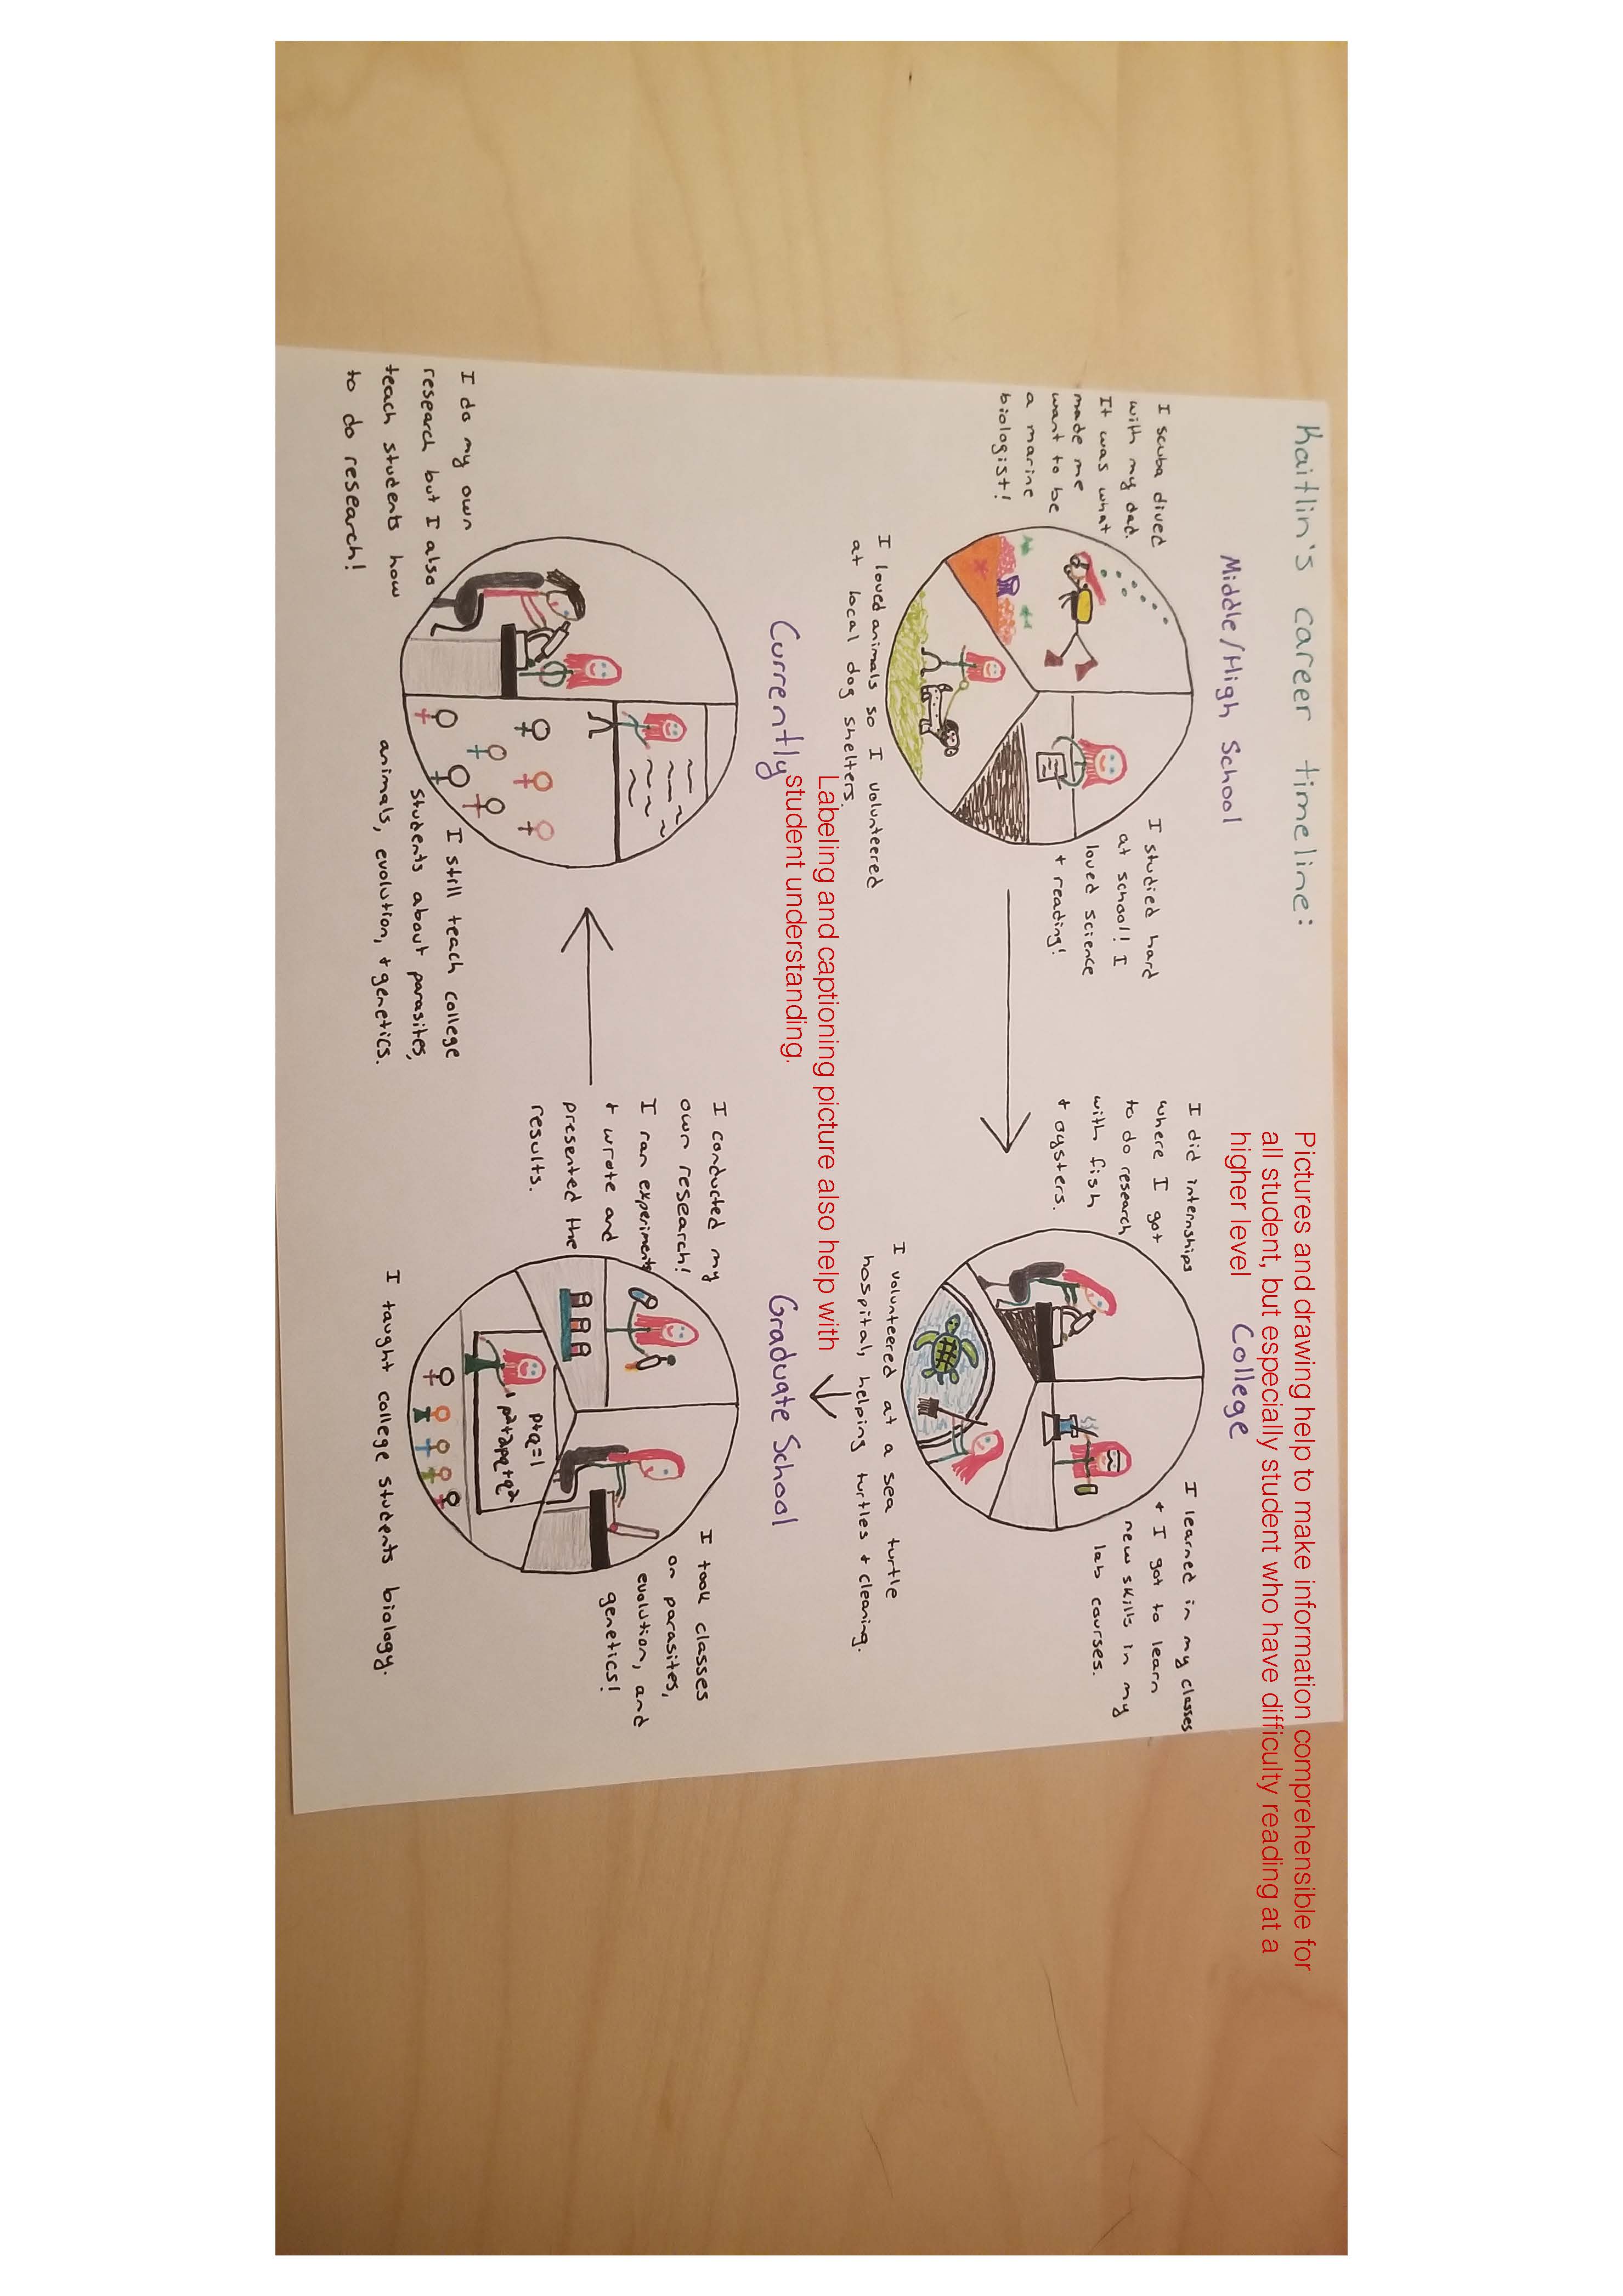 Kaitlin's career timeline:
Pictures and drawing help to make information comprehensible for
all student, but especially student who have difficulty reading at a
higher level
Middle/High School
I scuba dived
with my dad.
It was what
made me
want to be
a marine
biologist!
I studied hard
at school!! I
loved science
+ reading!
I loved animals so I volunteered
at local dog shelters.
College
I did internships
where I got
to do research
with fish
+ oysters.
I learned in my classes
+ I got to learn
new skills in my
lab courses.
I volunteered at a sea turtle
hospital, helping turtles + cleaning.
Labeling and captioning picture also help with
student understanding.
Graduate School
I conducted my
own research!
I ran experiments
+ wrote and
presented the
results.
I took classes
on parasites,
evolution, and
genetics!
p+q=1
p²+2pq+q²
I taught college students biology.
Currently
I do my own
research but I also
teach students how
to do research!
I still teach college
students about parasites,
animals, evolution, + genetics.